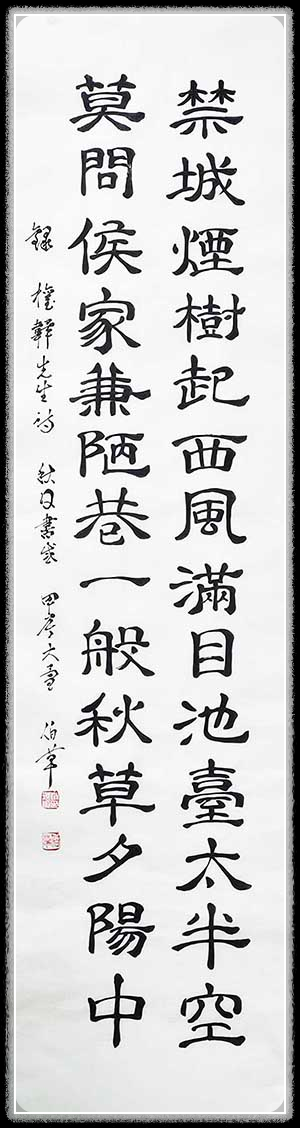 禁城煙樹起西風滿目池臺太半空
莫問侯家兼陋巷一般秋草夕陽中
錄 權韠先生詩 秋日書感 甲辰大暑 伯草